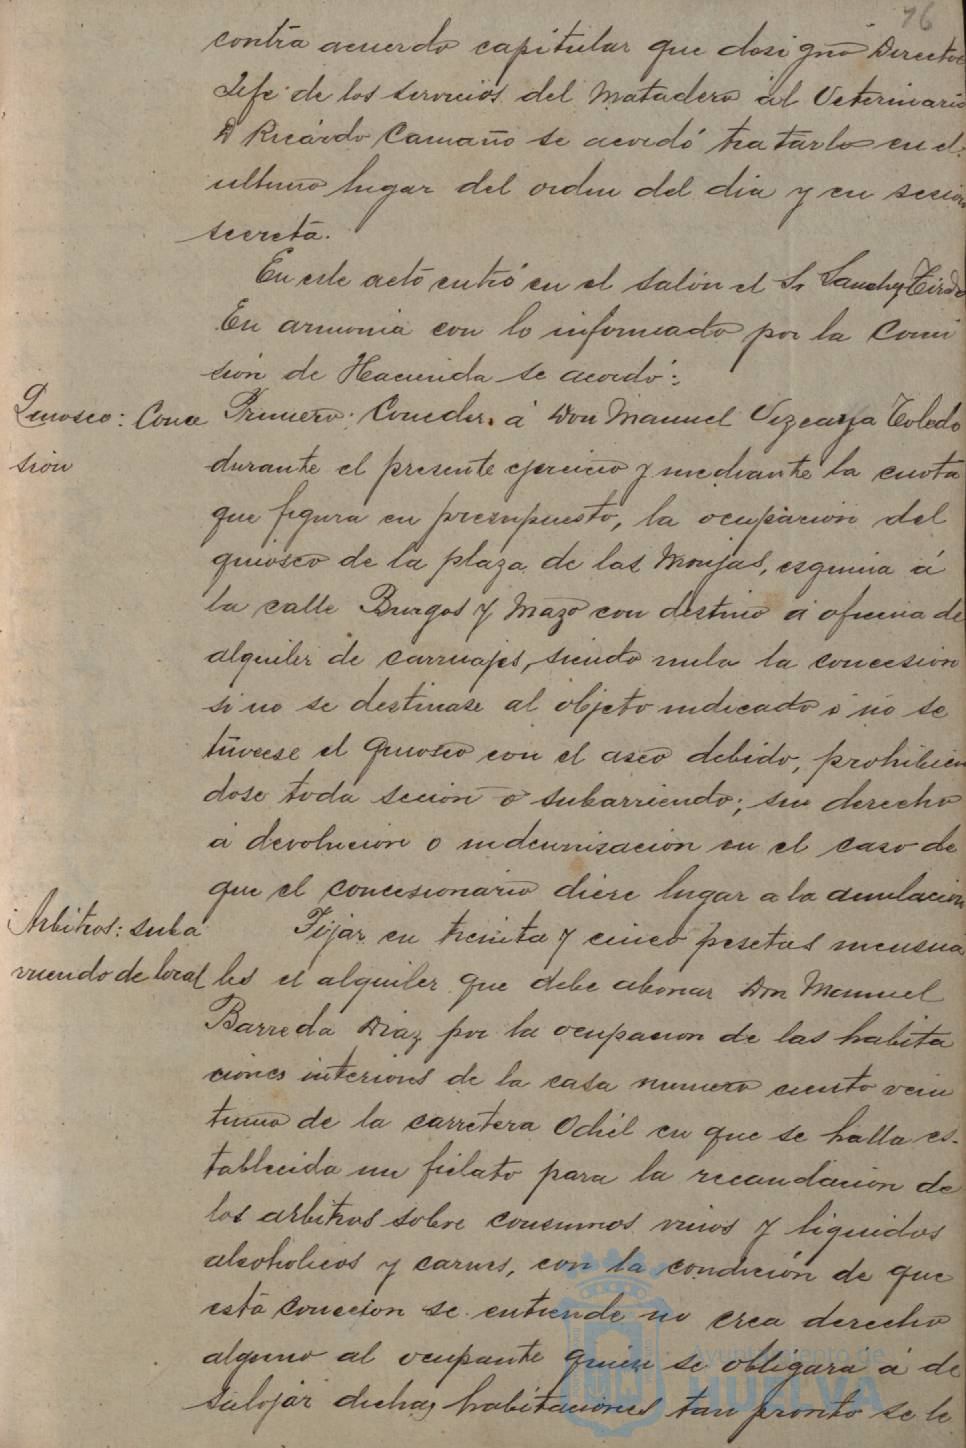 76
contra acuerdo capitular que designó Director
Jefe de los servicios del Matadero al Veterinario
D Ricardo Camaño se acordó tratarlo en el
ultimo lugar del orden del dia y en sesion
secreta.
En este acto entró en el salón el Sr Sanchez Tirado
En armonia con lo informado por la Comi
sión de Hacienda se acordó:
Quiosco: Conce
sión
Primero: Conceder á Don Manuel Vizcaya Toledo
durante el presente ejercicio y mediante la cuota
que figura en presupuesto, la ocupación del
quiosco de la plaza de las Monjas, esquina á
la calle Burgos y Mazo con destino á oficina de
alquiler de carruajes, siendo nula la concesion
si no se destinase al objeto indicado ó no se
tuviese el Quiosco con el aseo debido, prohibien
dose toda seción o subarriendo; sin derecho
á devolucion o indemnisacion en el caso de
que el concesionario diese lugar a la anulación
Arbitros: suba
rriendo de local
Fijar en treinta y cinco pesetas mensua
les el alquiler que debe abonar Don Manuel
Barreda Diaz por la ocupacion de las habita
ciones interiores de la casa numero ciento vein
tiuno de la carretera Odiel en que se halla es-
tablecida un fielato para la recaudación de
los arbitros sobre consumos vinos y liquidos
alcoholicos y carnes, con la condición de que
esta concecion se entiende no crea derecho
alguno al ocupante quien se obligara á de
salojar dichas habitaciones tan pronto se le
Ayuntamiento de
HUELVA